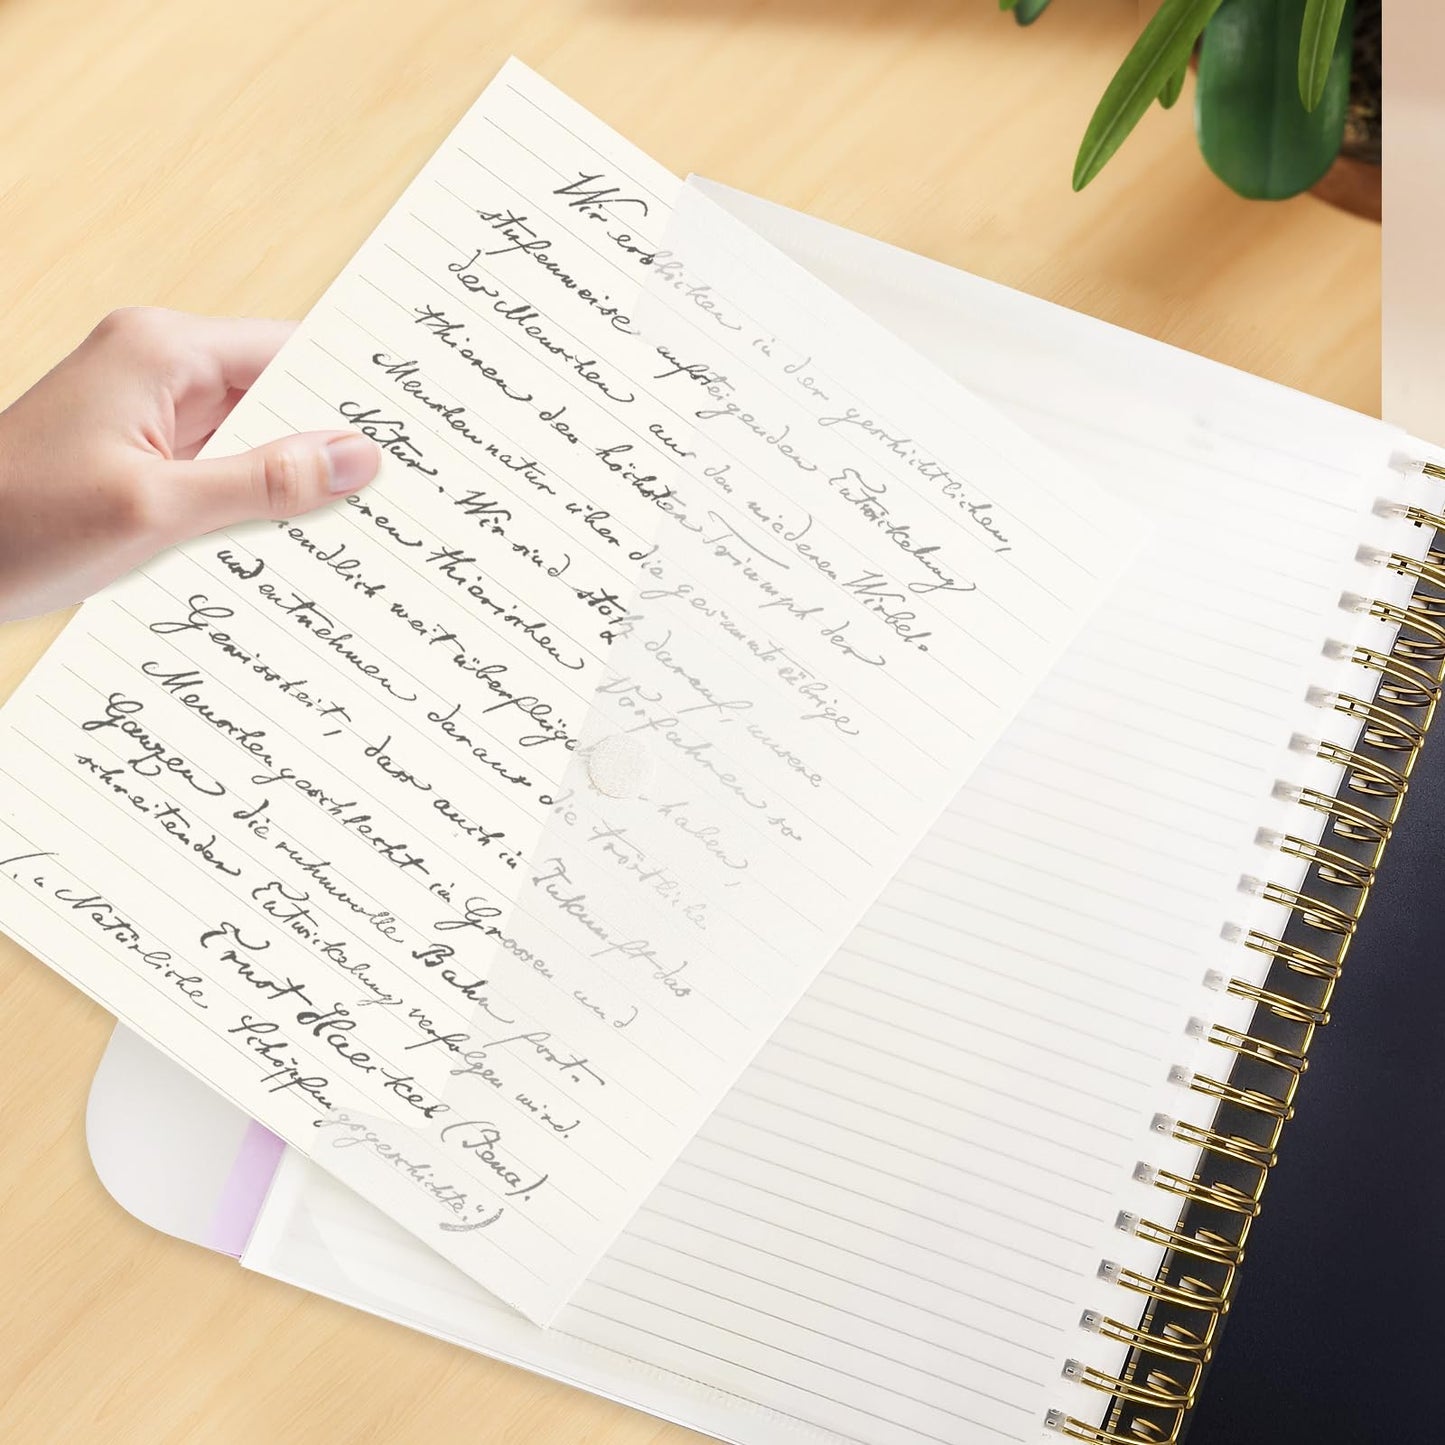 Wir erblicken in der geschichtlichen,
stufenweise aufsteigenden Entwickelung
der Menschen aus den niederen Wirbel-
thieren den höchsten Triumph der
Menschennatur über die gesammte übrige
Natur. Wir sind stolz darauf, unsere
eren thierischen Vorfahren so
nendlich weit überflügelt haben,
und entnehmen daraus die tröstliche
Gewissheit, dass auch in Zukunft das
Menschengeschlecht im Grossen und
Ganzen die ruhmvolle Bahn fort-
schreitender Entwickelung verfolgen wird.
Ernst Haeckel (Jena).
(„Natürliche Schöpfungsgeschichte.")